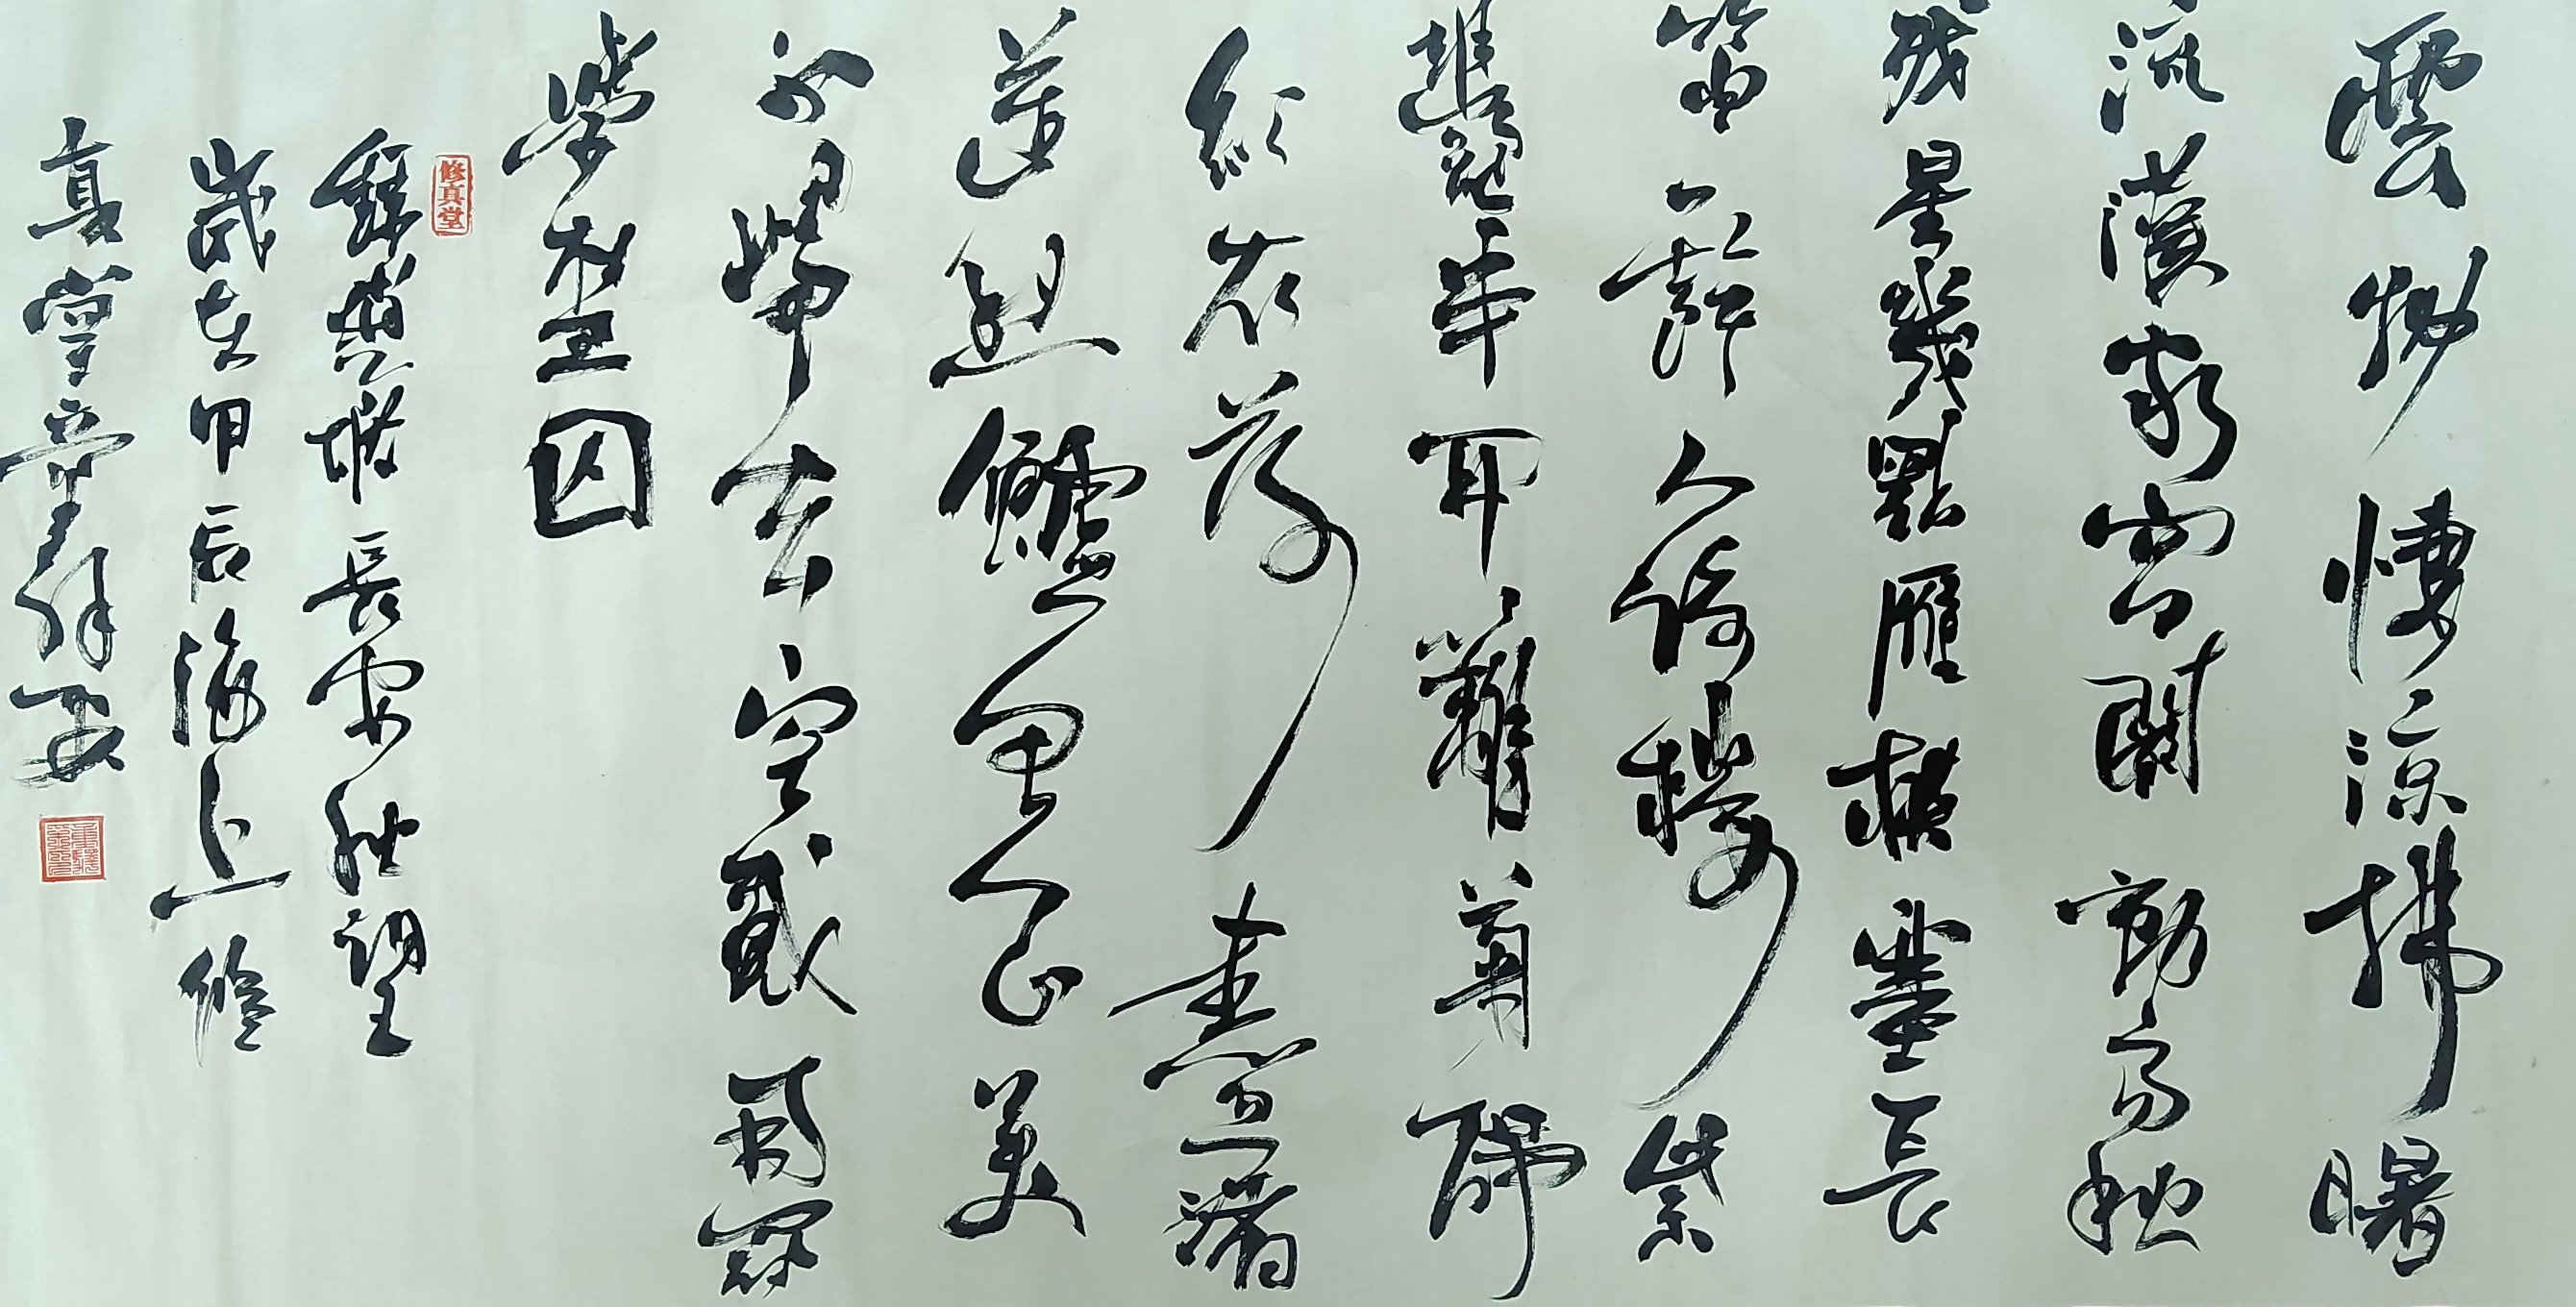 雲物悽涼拂曙
流漢家宮闕動高秋
殘星幾點雁橫塞長
笛一聲人倚樓紫
豔半開籬菊靜
紅衣落盡渚
蓮愁鱸魚正美
不歸去空戴南冠
學楚囚
修真堂
錄趙嘏長安秋望
歲在甲辰海上修
真堂童祥